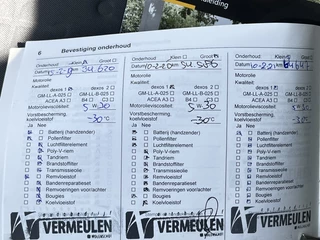 6 Bevestiging onderhoud
Onderhoud: Klein Groot
Datum km 54.620
Motorolie
Kwaliteit: dexos 1 dexos 2
GM-LL-A-025 GM-LL-B-025
ACEA A3 B4 C3
Motorolieviscositeit: 5W30
Vorstbescherming,
koelvloeistof -30°C
Ja Nee
Batterij (handzender)
Pollenfilter
Luchtfilterelement
Poly-V-riem
Tandriem
Brandstoffilter
Transmissieolie
Remvloeistof
Bandenreparatieset
Remvoeringen voor/achter
Bougies
VERMEULEN
Onderhoud: Klein Groot
Datum km
Motorolie
Kwaliteit: dexos 1 dexos 2
GM-LL-A-025 GM-LL-B-025
ACEA A3 B4 C3
Motorolieviscositeit: 5W30
Vorstbescherming,
koelvloeistof -30°C
Ja Nee
Batterij (handzender)
Pollenfilter
Luchtfilterelement
Poly-V-riem
Tandriem
Brandstoffilter
Transmissieolie
Remvloeistof
Bandenreparatieset
Remvoeringen voor/achter
Bougies
VERMEULEN
Onderhoud: Klein Groot
Datum
Motorolie
Kwaliteit: dexos 1 dexos 2
GM-LL-A-025 GM-LL-B-025
ACEA A3 B4 C3
Motorolieviscositeit: 5W30
Vorstbescherming,
koelvloeistof -30°C
Ja Nee
Batterij (handzender)
Pollenfilter
Luchtfilterelement
Poly-V-riem
Tandriem
Brandstoffilter
Transmissieolie
Remvloeistof
Bandenreparatieset
Remvoeringen voor/achter
Bougies
VERMEULEN